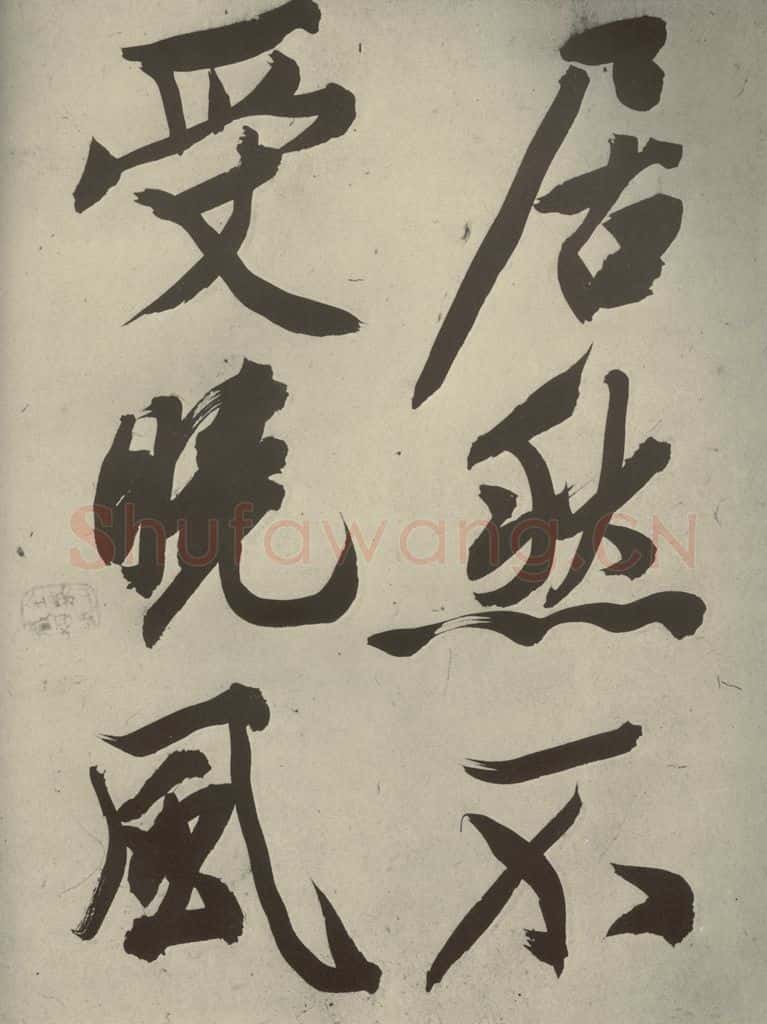 居然不
受晚風
Shufawang.CN